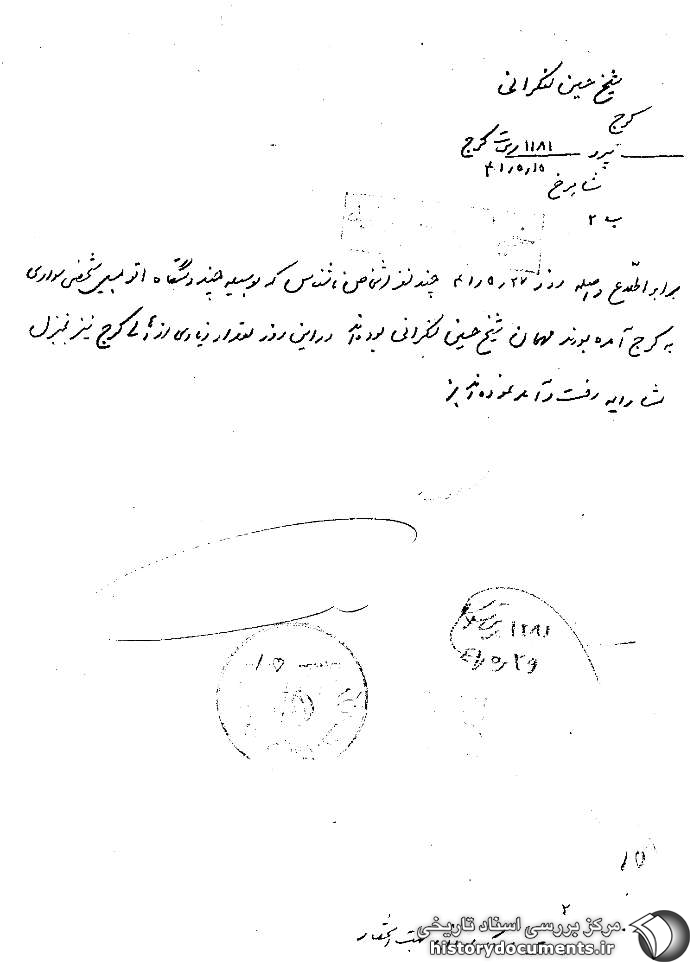 شیخ حسین لنکرانی
کرج
پیرو ۱۱۸۱ کرج
۴۱٫۵٫۱۵
ب ۲
برابر اطلاع واصله روز ۲۷٫۵٫۴۱ چند نفر اشخاص ناشناس که بوسیله چند دستگاه اتومبیل شخصی سواری
به کرج آمده بودند مهمان شیخ حسین لنکرانی بوده‌اند در این روز تعداد زیادی از اهالی کرج نیز بمنزل
مشارالیه رفت و آمد نموده‌اند
۱۲۸۱
۴۱٫۵٫۲۹
۱۵
۱۵
۲
مرکز بررسی اسناد تاریخی
historydocuments.ir